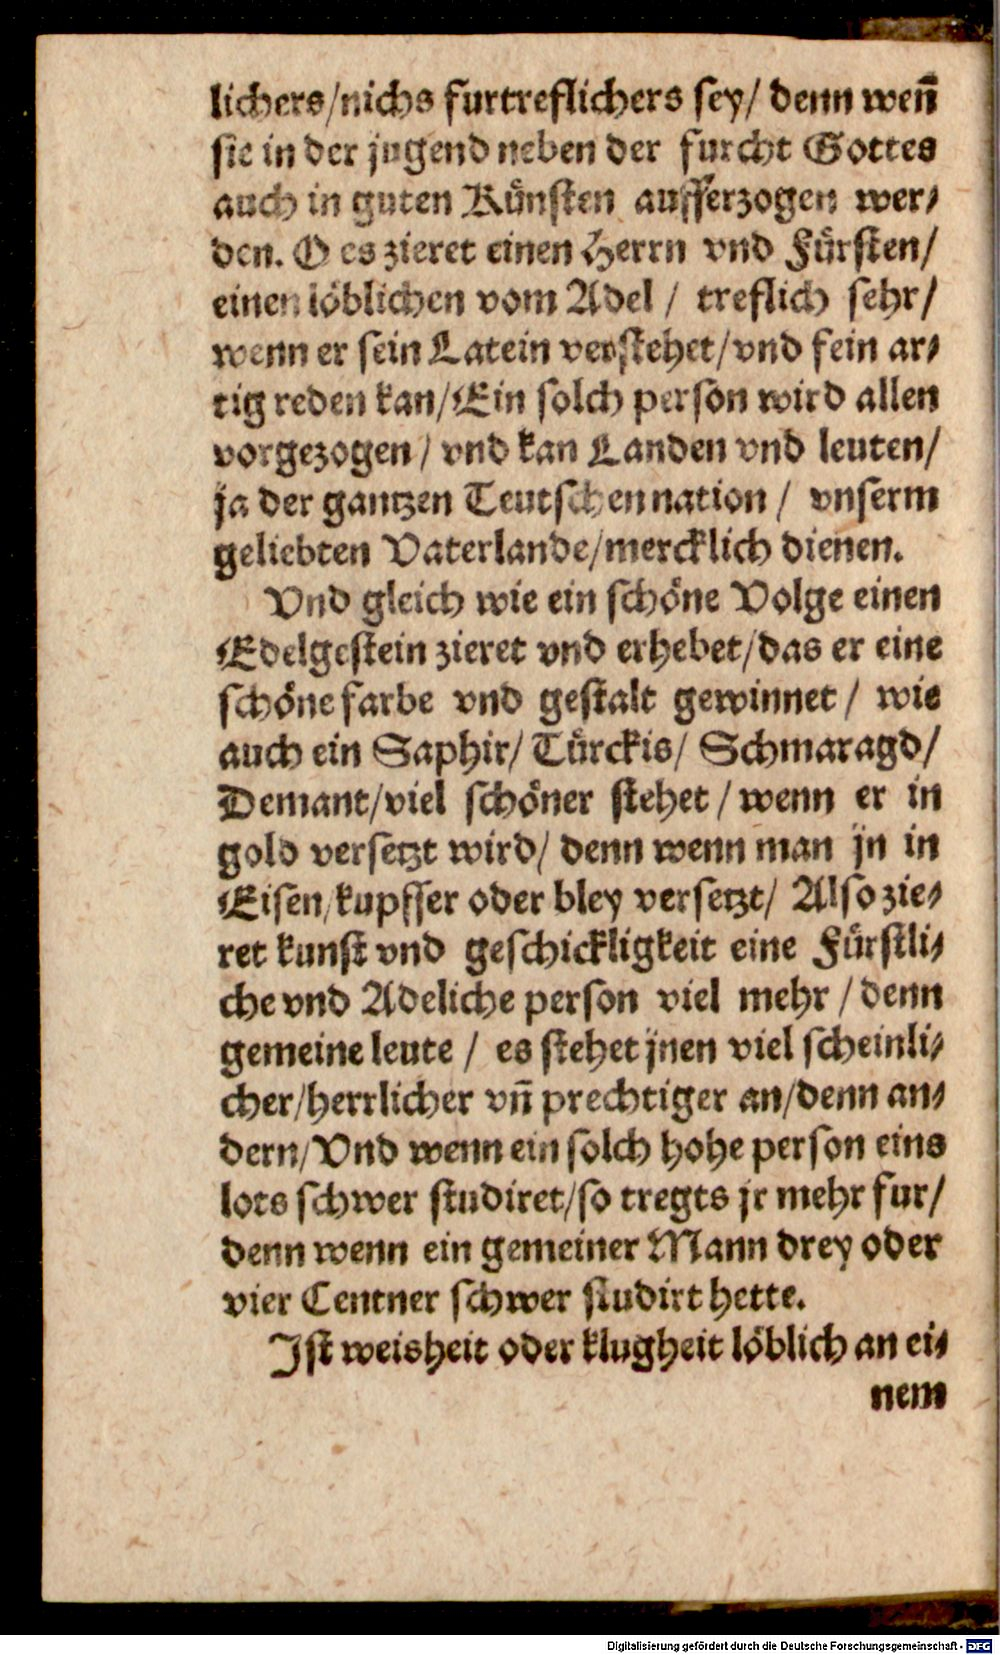 lichers/nichs furtreflichers sey/ denn weñ
sie in der jugend neben der furcht Gottes
auch in guten Künsten aufferzogen wer⸗
den. O es zieret einen Herrn vnd Fürsten/
einen löblichen vom Adel / treflich sehr/
wenn er sein Latein verstehet/vnd fein ar⸗
tig reden kan/Ein solch person wird allen
vorgezogen / vnd kan Landen vnd leuten/
ja der gantzen Teutschen nation / vnserm
geliebten Vaterlande/mercklich dienen.
Vnd gleich wie ein schöne Volge einen
Edelgestein zieret vnd erhebet/das er eine
schöne farbe vnd gestalt gewinnet / wie
auch ein Saphir/ Türckis/ Schmaragd/
Demant/viel schöner stehet / wenn er in
gold versetzt wird/ denn wenn man jn in
Eisen/kupffer oder bley versetzt/ Also zie⸗
ret kunst vnd geschickligkeit eine Fürstli⸗
che vnd Adeliche person viel mehr / denn
gemeine leute / es stehet jnen viel scheinli⸗
cher/herrlicher vñ prechtiger an/denn an⸗
dern/Vnd wenn ein solch hohe person eins
lots schwer studiret/so tregts jr mehr fur/
denn wenn ein gemeiner Mann drey oder
vier Centner schwer studirt hette.
Ist weisheit oder klugheit löblich an ei⸗
nem
Digitalisierung gefördert durch die Deutsche Forschungsgemeinschaft - DFG